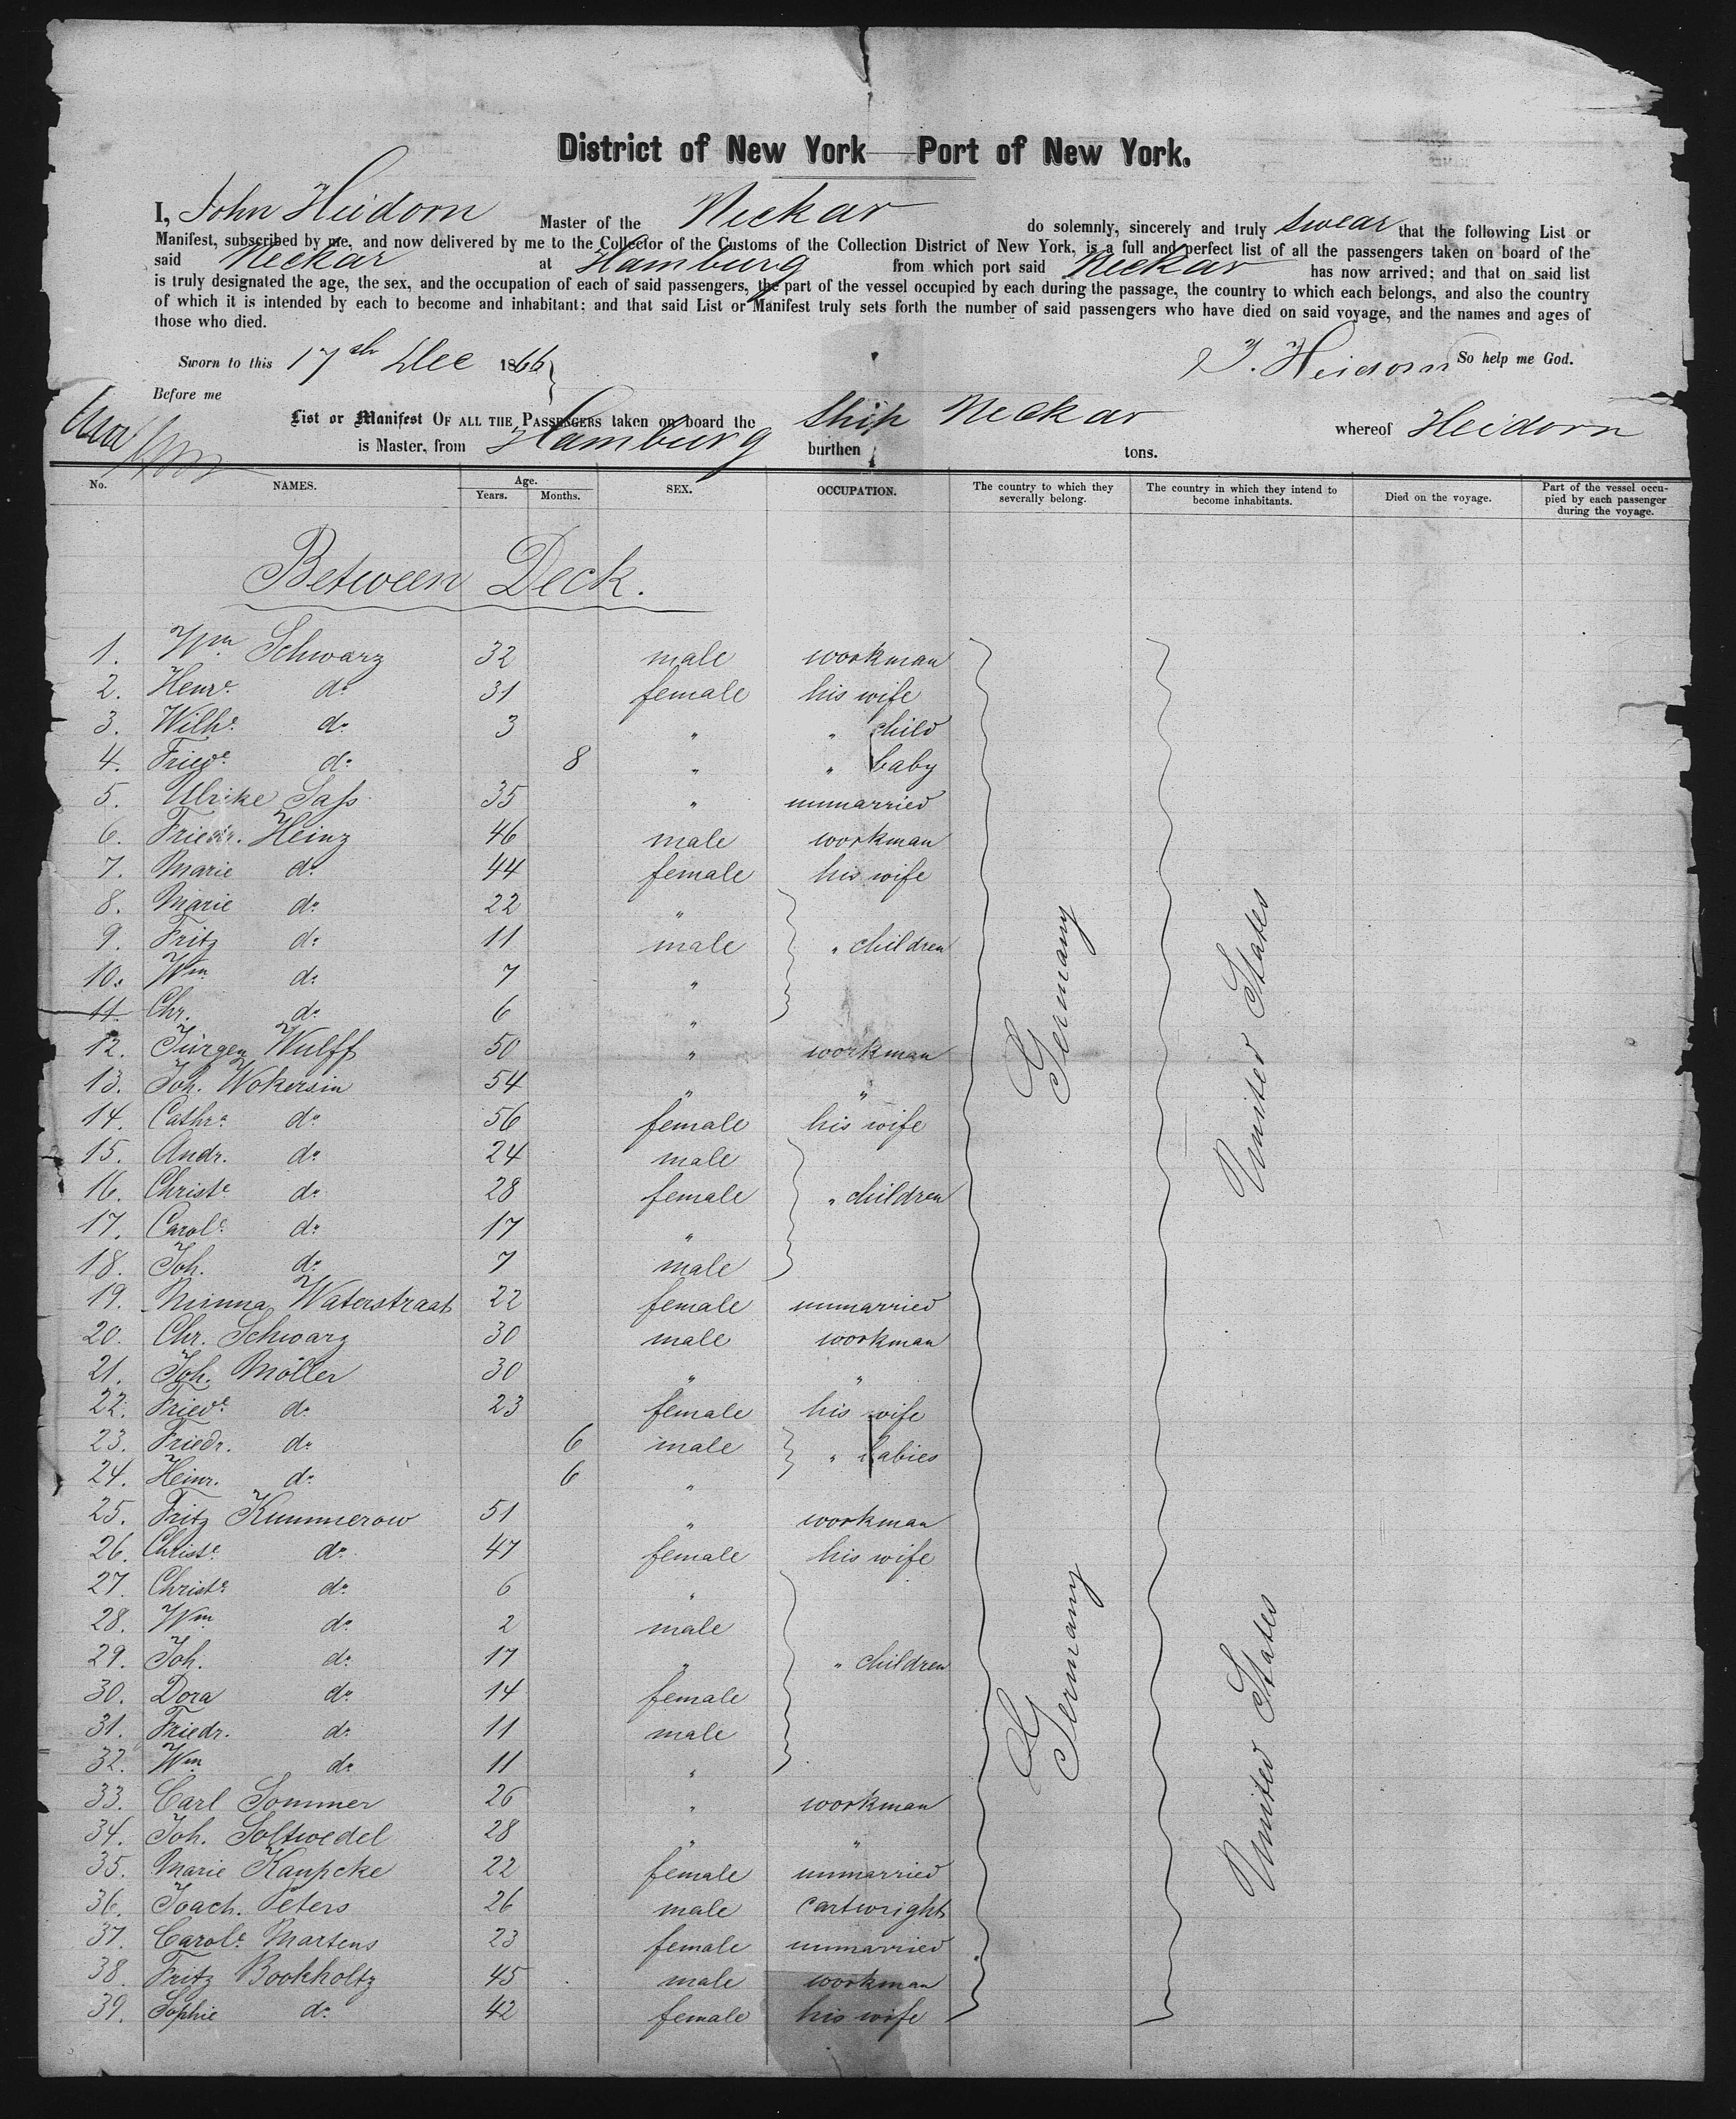 District of New York—Port of New York.
I, John Heidorn Master of the Neckar do solemnly, sincerely and truly swear that the following List or
Manifest, subscribed by me, and now delivered by me to the Collector of the Customs of the Collection District of New York, is a full and perfect list of all the passengers taken on board of the
said Neckar at Hamburg from which port said Neckar has now arrived; and that on said list
is truly designated the age, the sex, and the occupation of each of said passengers, the part of the vessel occupied by each during the passage, the country to which each belongs, and also the country
of which it is intended by each to become and inhabitant; and that said List or Manifest truly sets forth the number of said passengers who have died on said voyage, and the names and ages of
those who died.
Sworn to this 17th Dec 1866 J. Heidorn So help me God.
Before me
List or Manifest OF ALL THE PASSENGERS taken on board the Ship Neckar whereof Heidorn
is Master, from Hamburg burthen tons.
No. NAMES. Age. Years. Months. SEX. OCCUPATION. The country to which they severally belong. The country in which they intend to become inhabitants. Died on the voyage. Part of the vessel occupied by each passenger during the voyage.
Between Deck.
1. Wm Schwarz 32 male workman
2. Henre do 31 female his wife
3. Wilhe do 3 " " child
4. Friede do 8 " " baby
5. Ulrike Sass 35 " unmarried
6. Friedr. Heinz 46 male workman
7. Marie do 44 female his wife
8. Marie do 22 "
9. Fritz do 11 male " children
10. Wm do 7 "
11. Chr. do 6 "
12. Jürgen Wulff 50 " workman
13. Joh. Wokersin 54 " "
14. Cathra do 56 female his wife
15. Andr. do 24 male
16. Christe do 28 female " children
17. Carole do 17 "
18. Joh. do 7 male
19. Minna Waterstraat 22 female unmarried
20. Chr. Schwarz 30 male workman
21. Joh. Möller 30 " "
22. Friede do 23 female his wife
23. Friedr. do 6 male " babies
24. Heinr. do 6 "
25. Fritz Kummerow 51 " workman
26. Christe do 47 female his wife
27. Christe do 6 "
28. Wm do 2 male
29. Joh. do 17 " " children
30. Dora do 14 female
31. Friedr. do 11 male
32. Wm do 11 "
33. Carl Sommer 26 " workman
34. Joh. Soltwedel 28 " "
35. Marie Kaupcke 22 female unmarried
36. Joach. Peters 26 male cartwright
37. Carole Martens 23 female unmarried
38. Fritz Bookholtz 45 male workman
39. Sophie do 42 female his wife
Germany
United States
Germany
United States